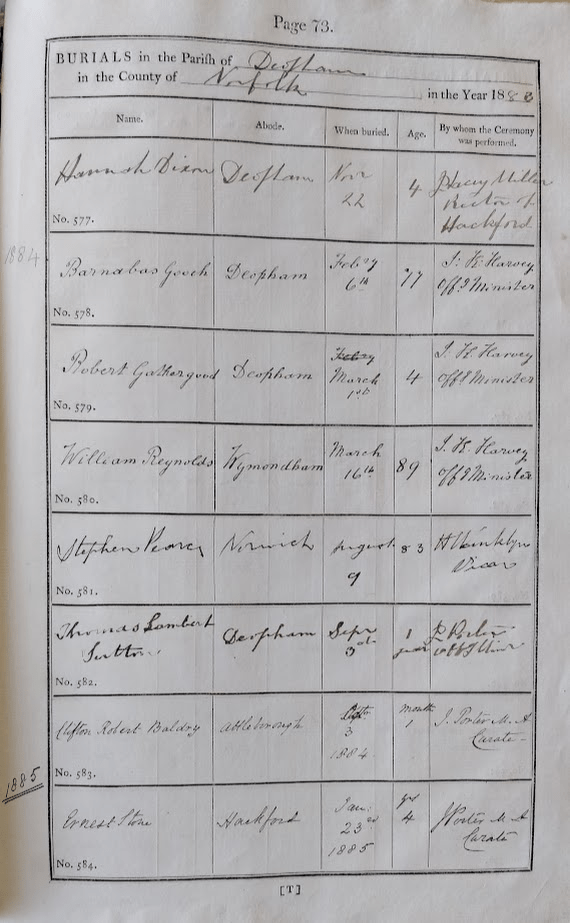 Page 73.
BURIALS in the Parish of Deopham
in the County of Norfolk in the Year 1883
Name. Abode. When buried. Age. By whom the Ceremony was performed.
Hannah Dixon Deopham Novr 22 4 J Harry Miller Rector of Hackford
No. 577.
1884
Barnabas Gooch Deopham Feby 6th 77 J. K. Harvey Offg Minister
No. 578.
Robert Gathergood Deopham Feby March 1st 4 J. K. Harvey Offg Minister
No. 579.
William Reynolds Wymondham March 16th 89 J. K. Harvey Offg Minister
No. 580.
Stephen Pearce Norwich August 9 83 H Hinklyn Vicar
No. 581.
Thomas Lambert Sutton Deopham Sepr 3d 1 year Porter
No. 582.
Clifton Robert Baldry Attleborough 3 1884 month 1 J. Porter M. A Curate
No. 583.
1885
Ernest Stone Hackford Jan: 23rd 1885 yrs 4 J Porter M A Curate
No. 584.
[T]